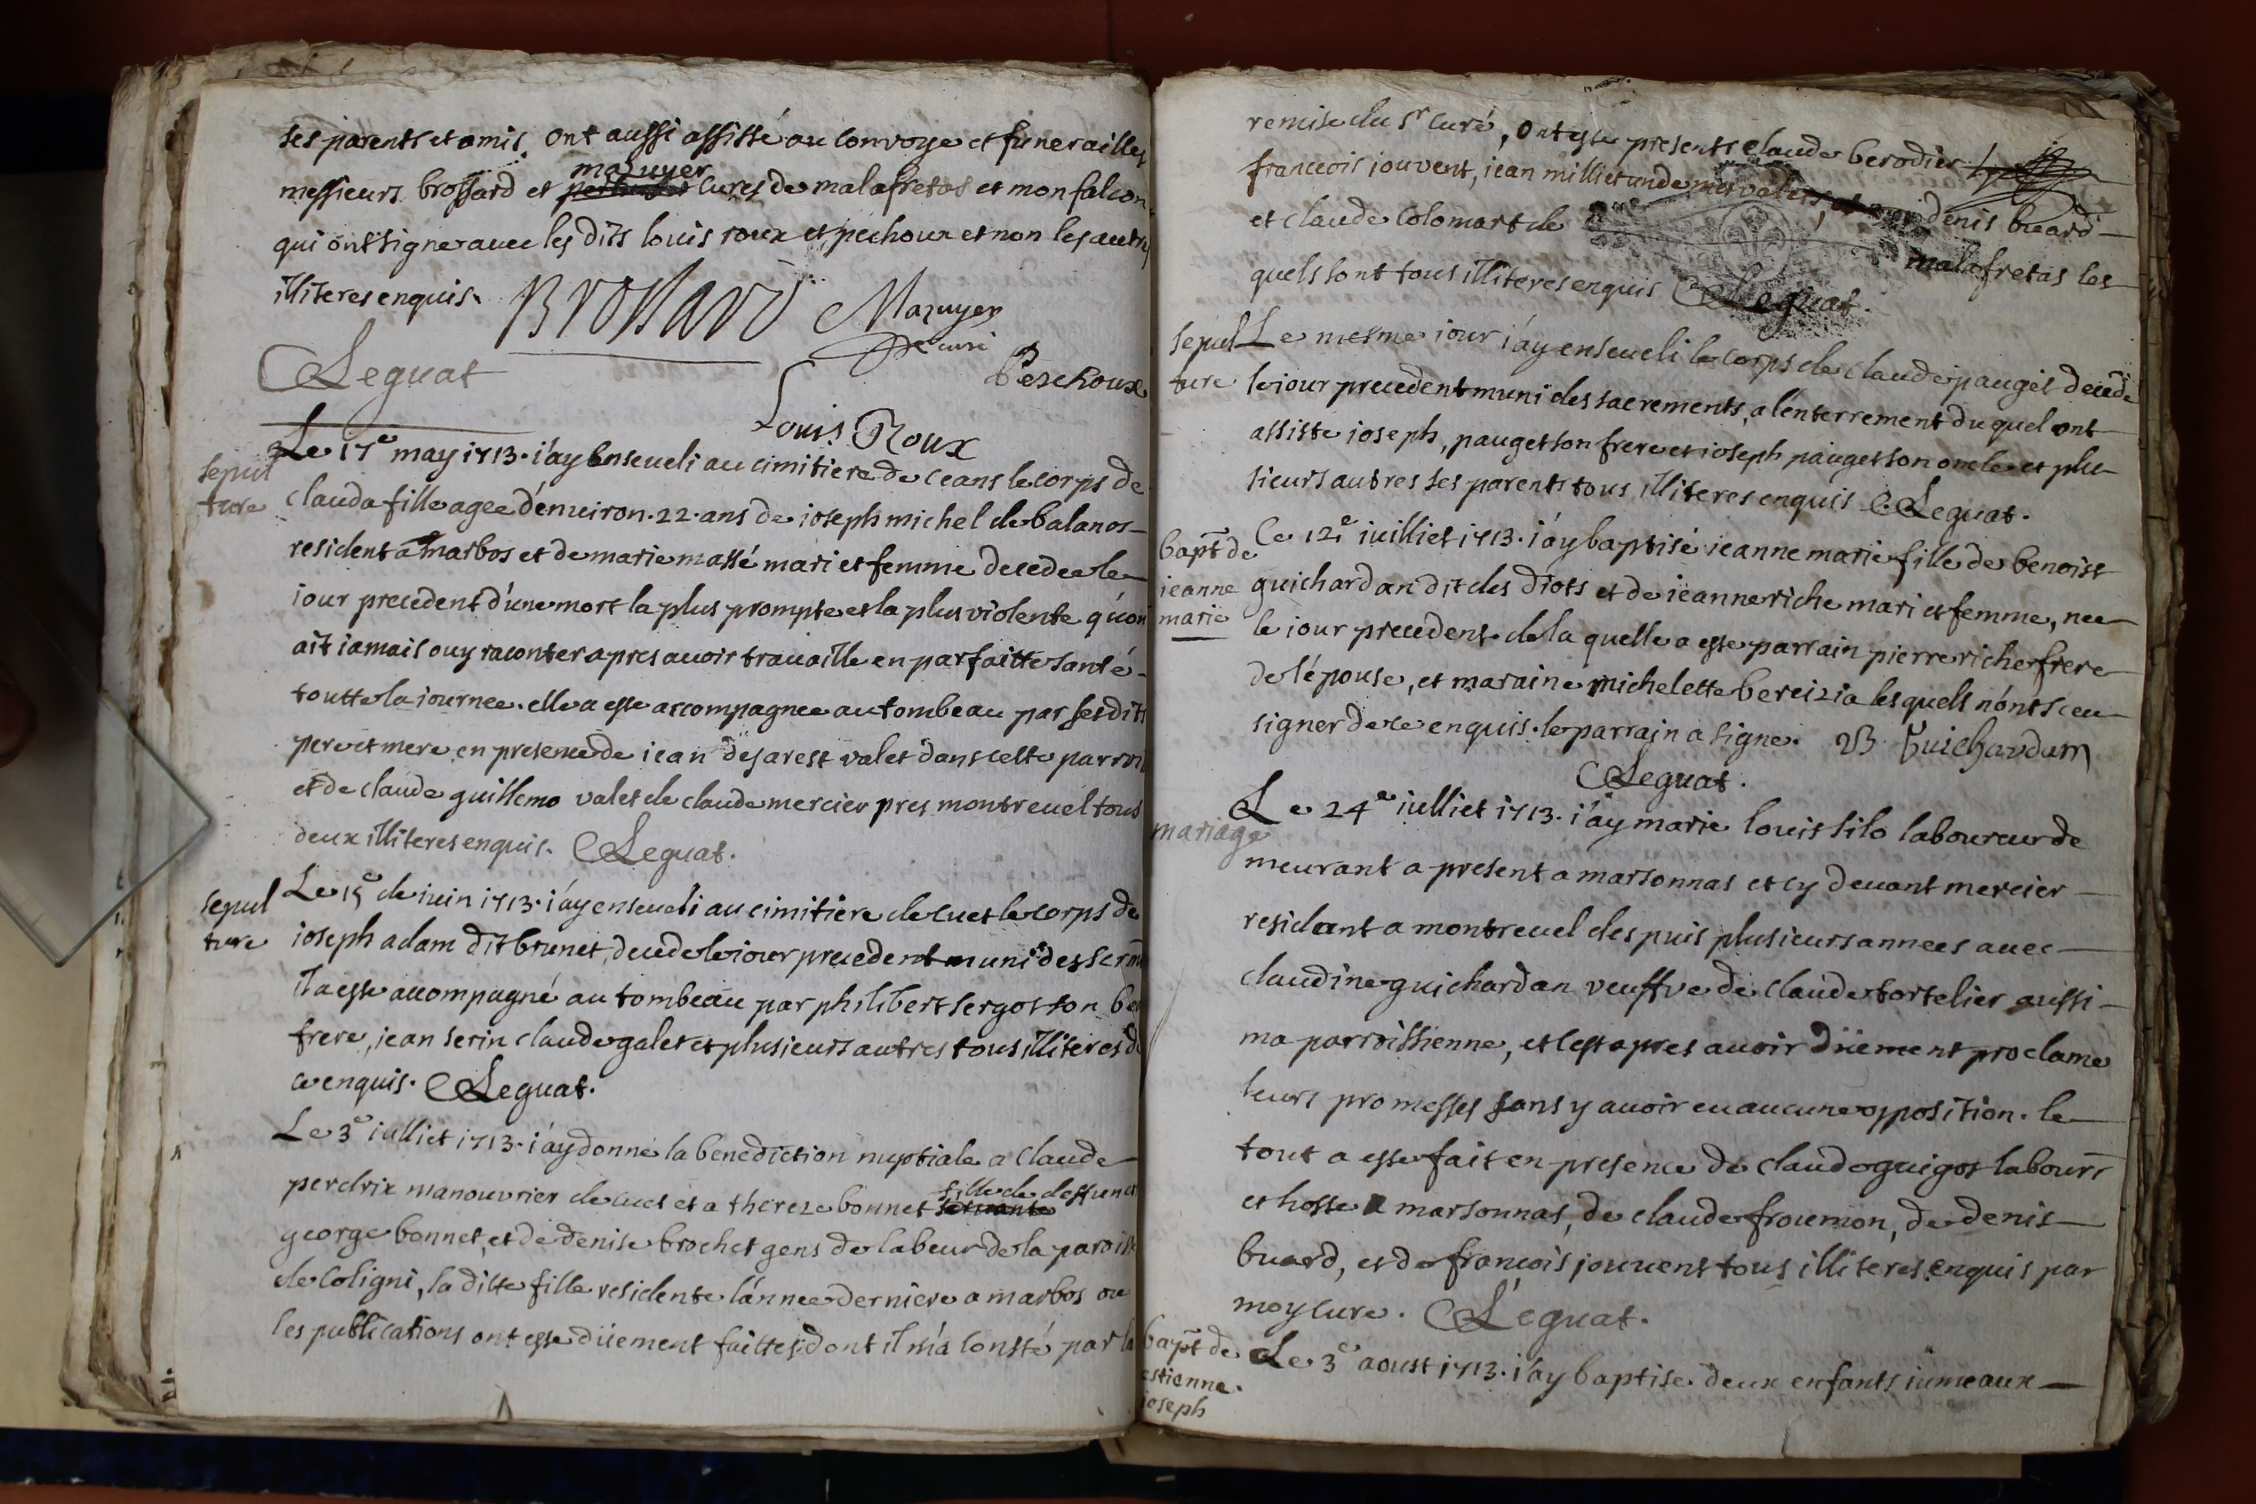 ses parents et amis. ont aussi assisté au convoye et funerailles
mazuyer
messieurs brossard et curés de malafretas et monfalcon
qui ont signe avec les dits louis roux et pechoux et non les autres
illiteres enquis.
Brossard
Mazuyer
curé
Leguat
Peschoux
Louis Roux
sepul
ture
Le 17e may 1713. i'ay enseveli au cimitiere de ceans le corps de
clauda fille agee d'enuiron .22. ans de ioseph michel de balanos
resident a marbos et de marie massé mari et femme decedee le
iour precedent d'une mort la plus prompte et la plus violente qu'on
ait iamais ouy raconter apres auoir trauaille en parfaitte santé
toutte la journee. elle a esse accompagnee au tombeau par ses dits
pere et mere en presence de iean desarest valet dans cette parroi
et de claude guillemo valet de claude mercier pres montreuel tous
deux illiteres enquis. Leguat.
sepul
ture
Le 15e de iuin 1713. i'ay enseueli au cimitiere de cuet le corps de
ioseph adam dit brunet, decede le iour precedent muni des scrm
il a esse accompagné au tombeau par philibert sergos son be
frere, iean serin claude galet et plusieurs autres tous illiteres de
ce enquis. Leguat.
Le 3e iulliet 1713. i'ay donné la benediction nuptiale a claude
fille de deffunct
perdrix manouvrier de cuet et a thereze bonnet servante
george bonnet, et de denise brochet gens de labeur de la paroisse
de coligni, la ditte fille residente l'annee derniere a marbos ou
les publications ont esse düement faittes, dont il m'a consté par la
remise du Sr curé, ont esse presents claude berodier
francois iouvent, iean milliet un de mes valets, denis buard
et claude colomart de malafretas les
quels sont tous illiteres enquis Leguat.
sepul
ture
Le mesme iour i'ay enseueli le corps de claude pauget decedé
le iour precedent muni des sacrements, a l'enterrement du quel ont
assiste ioseph, pauget son frere et ioseph pauget son oncle et plu
sieurs autres ses parents tous illiteres enquis. Leguat.
bapt de
ieanne
marie
Ce 12e iuilliet 1713. i'ay baptisé ieanne marie fille de benoist
guichardan dit des diots et de ieanne riche mari et femme, nee
le iour precedent de la quelle a esse parrain pierre riche frere
de l'épouse, et maraine michelette bereizia les quels n'ont sceu
signer de ce enquis. le parrain a signe. B Guichardan
Leguat.
mariage
Le 24e iulliet 1713. i'ay marie louis silo laboureur de
meurant a present a marsonnas et cy deuant mercier
residant a montreuel despuis plusieurs annees auec
claudine guichardan veuffve de claude tortelier aussi
ma parroissienne, et c'est apres auoir düement proclame
leurs promesses sans y auoir eu aucune opposition. le
tout a esse fait en presence de claude guigot labourr
et hosse a marsonnas, de claude froumon, de denis
buard, et de francois jouuent tous illiteres enquis par
moy curé. Leguat.
bapt de
estienne.
ioseph
Le 3e aoust 1713. i'ay baptise. deux enfants iumeaux